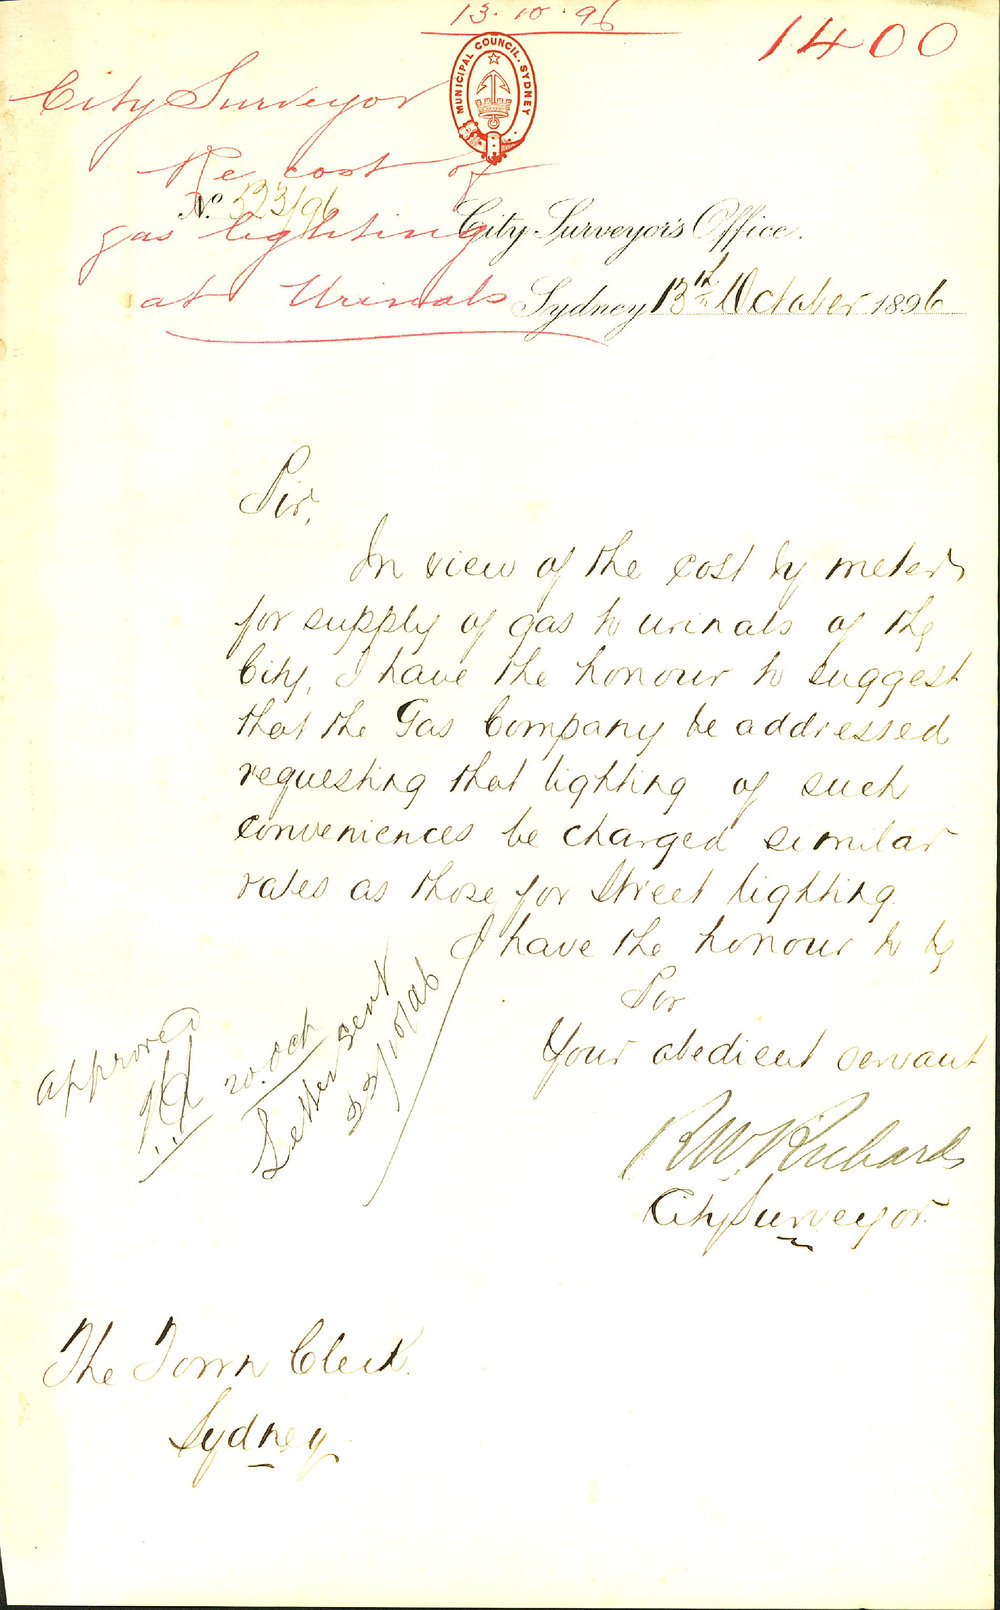 13.10.96
1400
MUNICIPAL COUNCIL. SYDNEY
City Surveyor
Re cost of
gas lighting
at Urinals
No. 523/96
City Surveyor's Office.
Sydney 13th October 1896
Sir,
In view of the cost by meter
for supply of gas to urinals of the
City, I have the honour to suggest
that the Gas Company be addressed
requesting that lighting of such
conveniences be charged similar
rates as those for Street lighting
I have the honour to be
Sir
Your obedient servant
R W. Richards
City Surveyor.
Approved
20. Oct
Letter sent
22/10/96
The Town Clerk.
Sydney